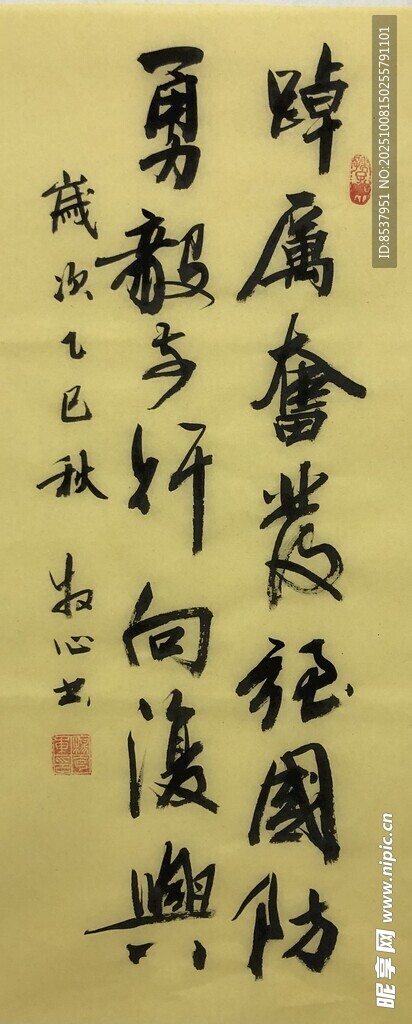 踔厲奮發强國防
勇毅前行向復興
歲次乙巳秋 牧心書
ID:8537951 NO:20251008150255791101
昵享网 www.nipic.cn